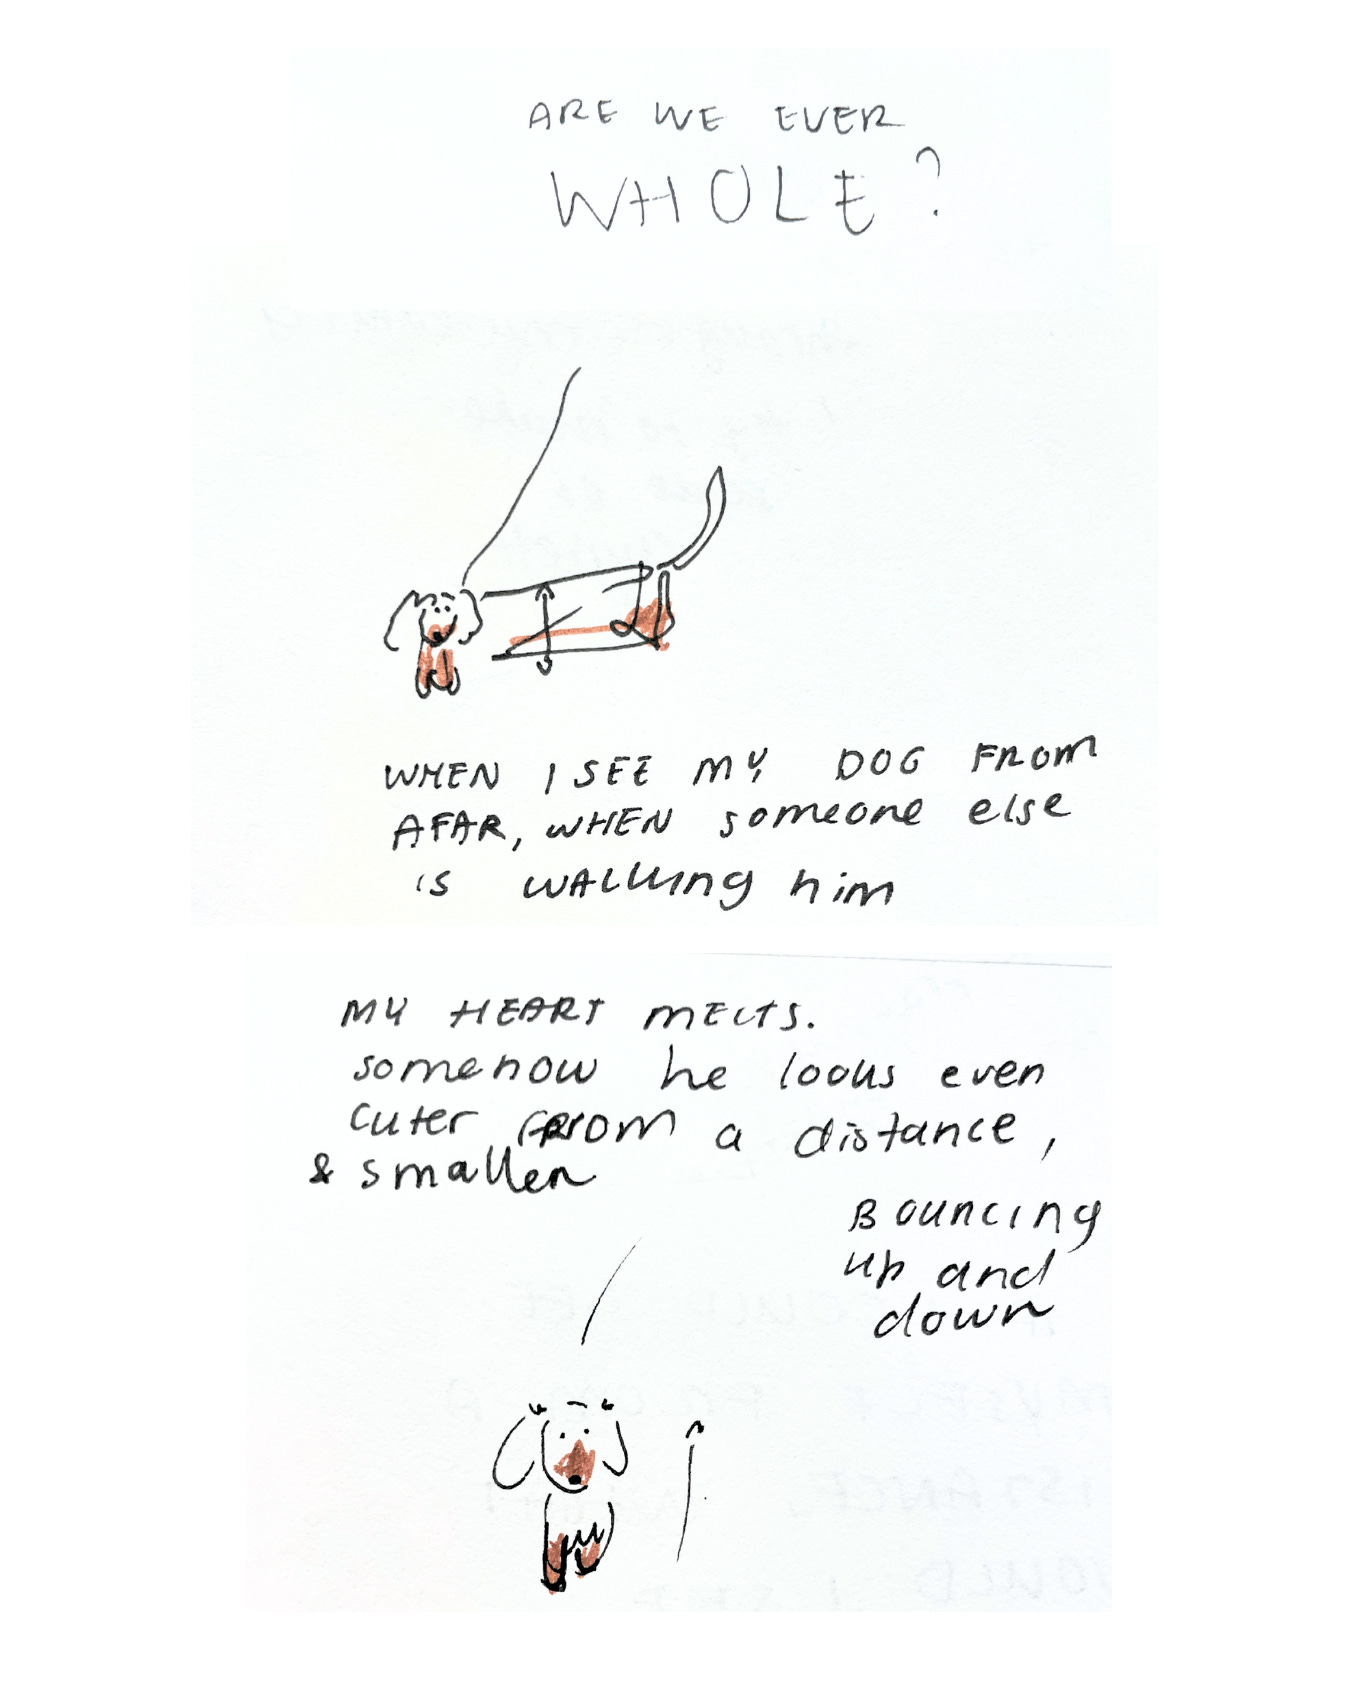 ARE WE EVER
WHOLE?
WHEN I SEE MY DOG FROM
AFAR, WHEN someone else
is WALKing him
MY HEART MELTS.
somehow he looks even
cuter FROM a distance,
& smaller
BOUNCING
up and
down